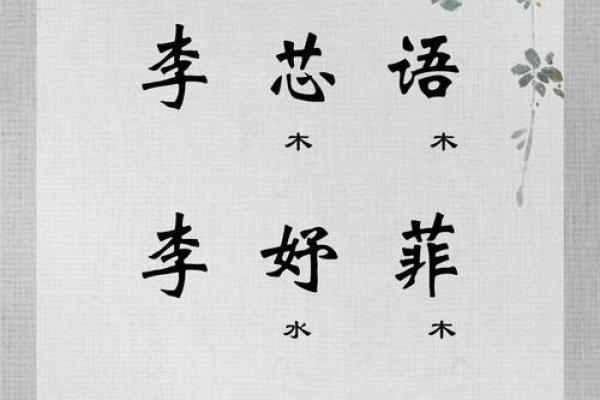 李芯语
木 木
李妤菲
水 木